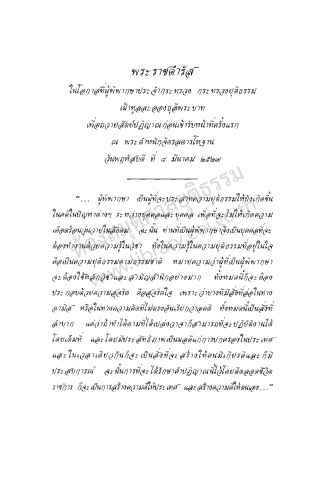 พระราชดำรัส
ในโอกาสที่ผู้พิพากษาประจำกระทรวง กระทรวงยุติธรรม
เฝ้าทูลละอองธุลีพระบาท
เพื่อถวายสัตย์ปฏิญาณก่อนเข้ารับหน้าที่ครั้งแรก
ณ พระตำหนักจิตรลดารโหฐาน
วันพฤหัสบดี ที่ ๘ มีนาคม ๒๕๒๗
“… ผู้พิพากษา เป็นผู้ที่จะประสาทความยุติธรรมให้บังเกิดขึ้น
ในคดีในปัญหาต่างๆ ระหว่างบุคคลและบุคคล เพื่อที่จะไม่ให้เกิดความ
เดือดร้อนวุ่นวายในสังคม ฉะนั้น ท่านที่เป็นผู้พิพากษาจึงเป็นบุคคลที่จะ
ต้องทำงานด้วยความรู้ในวิชา ทั้งในความรู้ในความยุติธรรมที่อยู่ในใจ
คือเป็นความยุติธรรมตามธรรมชาติ หมายความว่าผู้ที่เป็นผู้พิพากษา
จะต้องใช้หลักวิชาและสามัญสำนึกอย่างมาก ทั้งหมดนี้ก็จะต้อง
ประกอบด้วยความสุจริต คือสุจริตใจ เพราะว่าบางทีมีสิ่งที่ล่อในทาง
อามิส หรือในทางความคิดที่ไม่ตรงอันเรียกว่าอคติ ทั้งหมดนี้เป็นสิ่งที่
ลำบาก แต่ว่าถ้าทำได้ตามที่ได้เปล่งวาจาก็สามารถที่จะปฏิบัติงานได้
โดยเต็มที่ และโดยมีประสิทธิภาพเป็นผลดีแก่การปกครองในประเทศ
และในเวลาเดียวกันก็จะเป็นสิ่งที่จะสร้างให้ตนมีเกียรติและก็มี
ประสบการณ์ ฉะนั้นการที่จะได้รักษาคำปฏิญาณนี้ไว้โดยตลอดชีวิต
ราชการ ก็จะเป็นการสร้างความดีให้ประเทศ และสร้างความดีให้ตนเอง…”